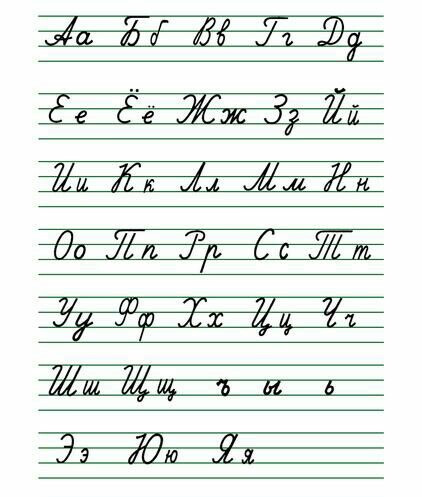 Аа Бб Вв Гг Дд
Ее Ёё Жж Зз Йй
Ии Кк Лл Мм Нн
Оо Пп Рр Сс Тт
Уу Фф Хх Цц Чч
Шш Щщ ъ ы ь
Ээ Юю Яя